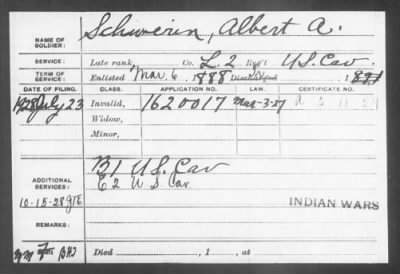 NAME OF SOLDIER: Schwerin, Albert A.
SERVICE: Late rank, Co. L. 2 Reg't U.S. Cav.
TERM OF SERVICE: Enlisted Mar. 6, 1888 Discharged 1
DATE OF FILING. CLASS. APPLICATION NO. LAW. CERTIFICATE NO.
1928 July 23 Invalid, 1620017 Mar-3-27
Widow,
Minor,
ADDITIONAL SERVICES: B 1 U S. Cav
E 2 U S Cav
10-15-28
INDIAN WARS
REMARKS:
Died , 1 , at